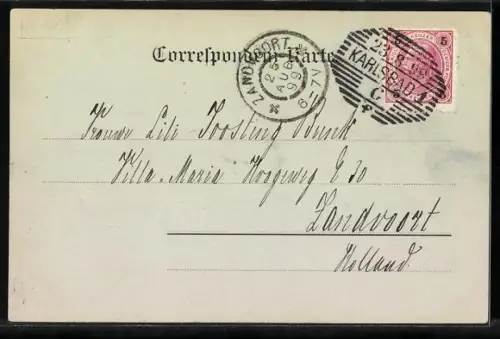 Correspondenz-Karte
ZANDVOORT
25
AUG
99
6-7V
5
23.8.99
KARLSBAD 1
Lili Toosting Bunk
Villa-Maria Hoogeweg E 30
Zandvoort
Holland.